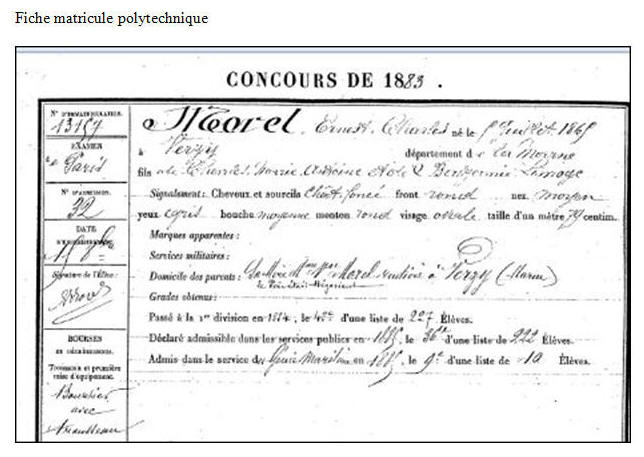 Fiche matricule polytechnique
CONCOURS DE 1883.
N° D'IMMATRICULATION.
13157
EXAMEN
à Paris
N° D'ADMISSION.
32
DATE
Signature de l'Élève:
BOURSES
Trousseau et première
mise d'équipement.
Boursier
avec
trousseau
Morel, Ernest Charles né le 5 Juillet 1865
à Verzy département de la Marne
fils de Charles Marie Antoine & Lemoge
Signalement: Cheveux et sourcils Chât. foncé front rond nez moyen
yeux gris bouche moyenne menton rond visage ovale taille d'un mètre 79 centim.
Marques apparentes:
Services militaires:
Domicile des parents: Sa Mère Mme Vve Morel rentière à Verzy (Marne)
le Père était Négociant
Grades obtenus:
Passé à la 1re division en 1884, le 40e d'une liste de 227 Élèves.
Déclaré admissible dans les services publics en 1885, le 36e d'une liste de 222 Élèves.
Admis dans le service du Génie Maritime en 1885, le 9e d'une liste de 10 Élèves.